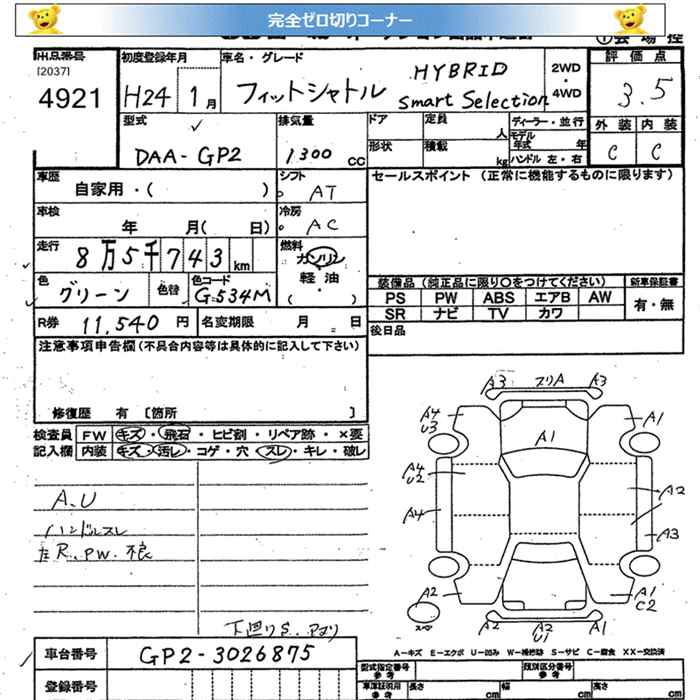 完全ゼロ切りコーナー
出品番号
[2037]
4921
初度登録年月
H24 1月
車名・グレード
フィットシャトル HYBRID
Smart Selection
2WD
・
4WD
評価点
3.5
外装 内装
C C
型式
DAA-GP2
排気量
1300 cc
ドア 定員 人
形状 積載 kg
ディーラー・並行
モデル
年式 年
ハンドル 左・右
車歴
自家用・( )
シフト
AT
車検
年 月( 日)
冷房
AC
走行
8万5千743km
燃料
ガソリン
軽油
( ・ )
色
グリーン
色替
色コード
G-534M
R券 11,540 円
名変期限 月 日
セールスポイント (正常に機能するものに限ります)
装備品 (純正品に限り〇をつけてください)
PS PW ABS エアB AW
SR ナビ TV カワ
新車保証書
有・無
後日品
注意事項申告欄(不具合内容等は具体的に記入して下さい)
修復歴 有 〔箇所 〕
検査員 FW キズ・飛石・ヒビ割・リペア跡・×要
記入欄 内装 キズ・汚レ・コゲ・穴・スレ・キレ・破レ
A.U
ハンドルスレ
左R.PW.不良
下廻りS.
A3 スリA A3
A4
U3
A1
A1
A4
U2
A2
A4
A3
A2
A1
C2
A2
U1
A2
A1
A-キズ E-エクボ U-凹み W-補修跡 S-サビ C-腐食 XX-交換済
車台番号 GP2-3026875
登録番号
型式指定番号
参考
類別区分番号
参考
長さ cm 幅 cm 高さ cm